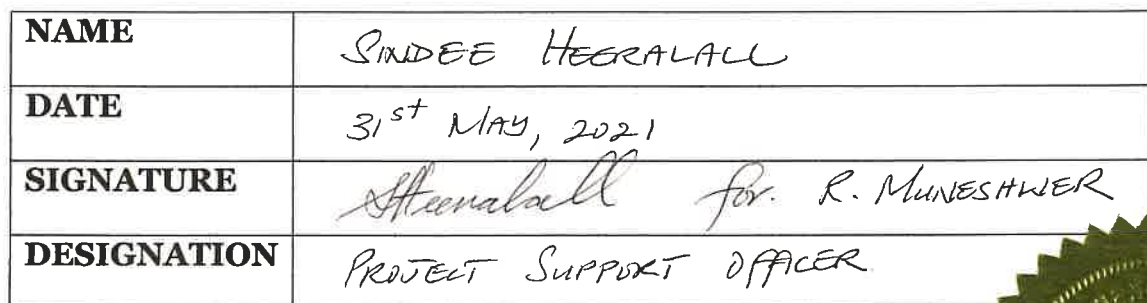 NAME SINDEE HEERALALL
DATE 31st MAY, 2021
SIGNATURE SHeeralall for. R. MUNESHWER
DESIGNATION PROJECT SUPPORT OFFICER